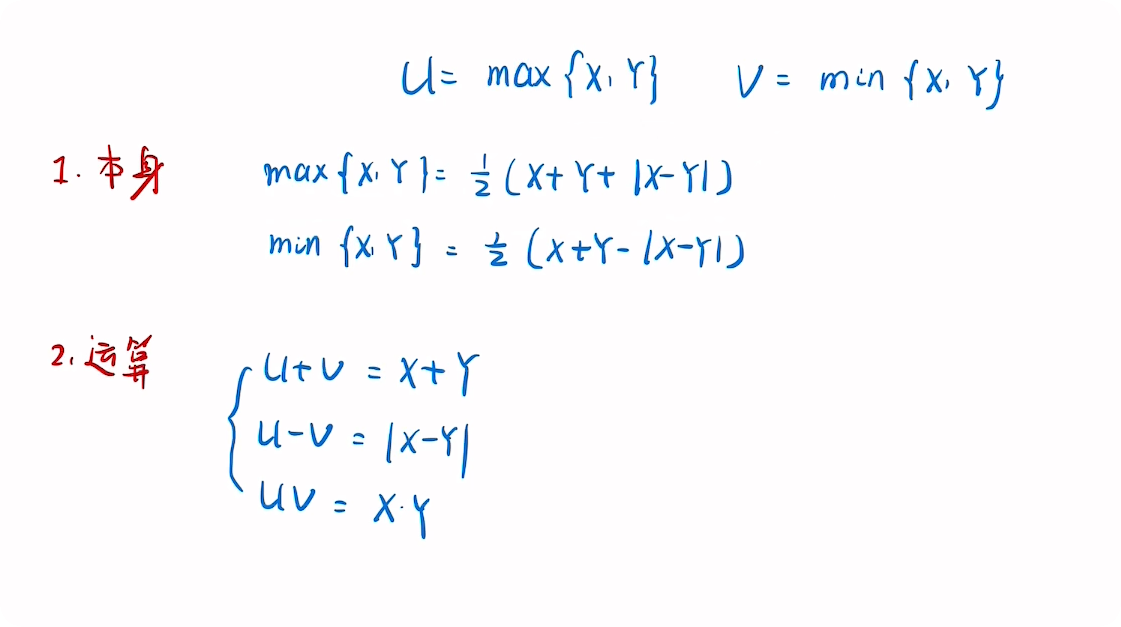 U = max {X, Y} V = min {X, Y}
1. 本身 max {X, Y} = 1/2 (X + Y + |X - Y|)
min {X, Y} = 1/2 (X + Y - |X - Y|)
2. 运算
U + V = X + Y
U - V = |X - Y|
UV = X · Y